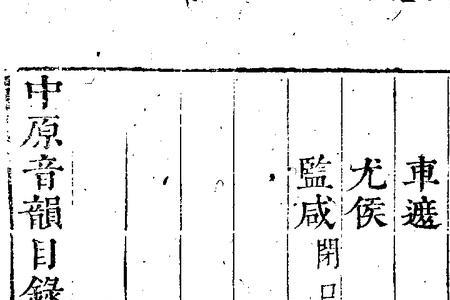 車遮
尤侯
監咸閉口
中原音韻目録